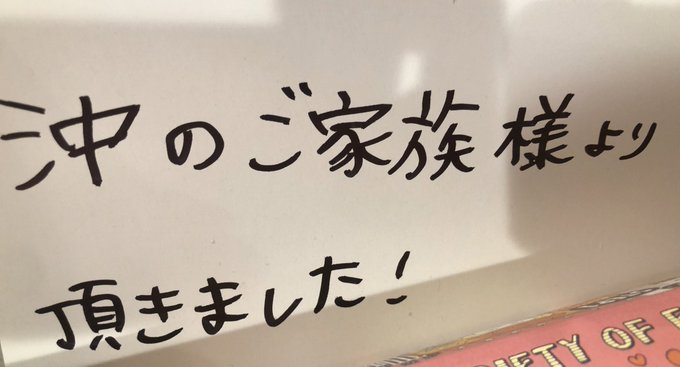 沖のご家族様より
頂きました!
IETY OF